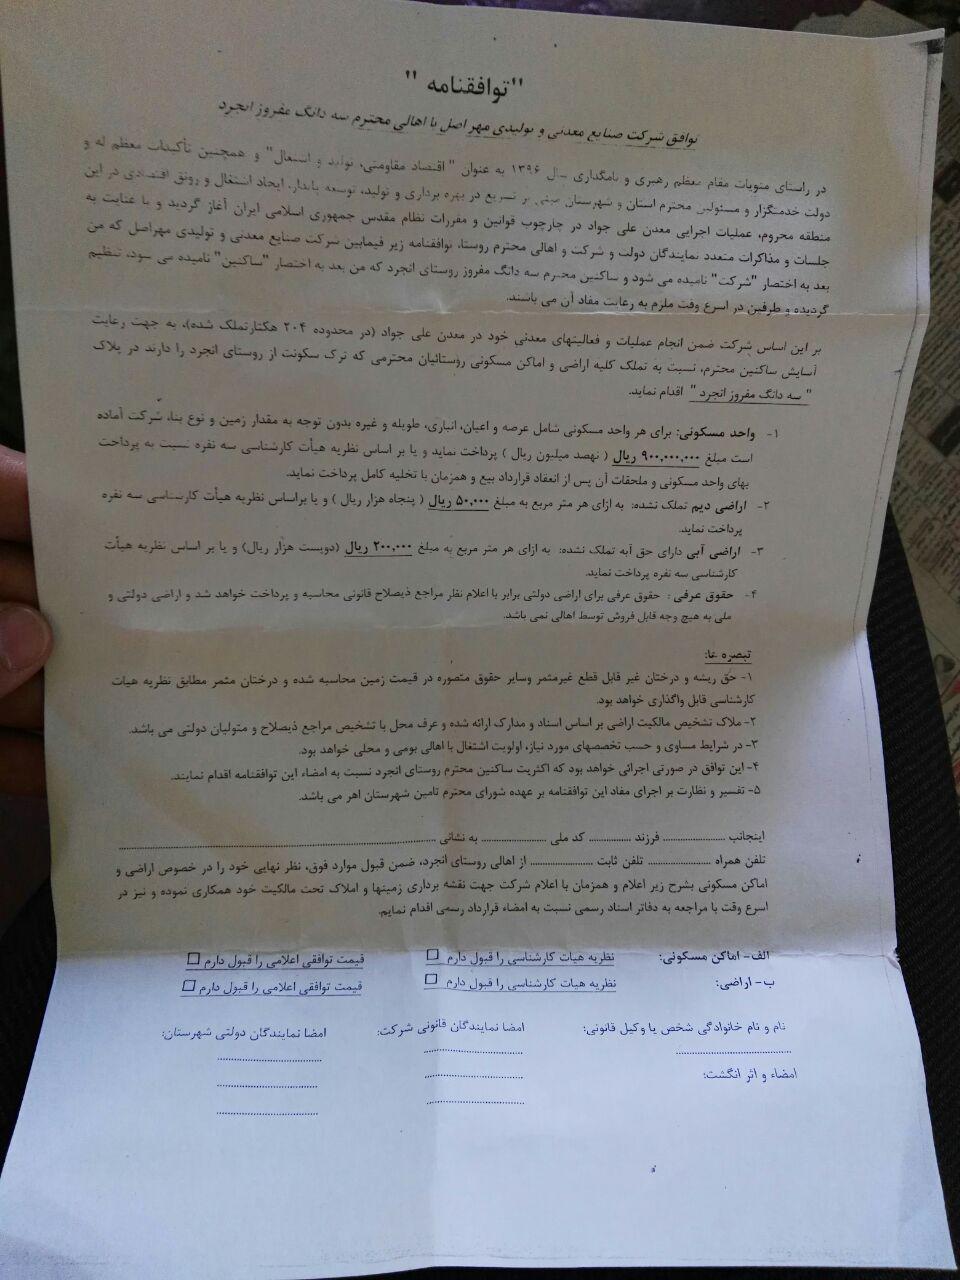 "توافقنامه"
توافق شرکت صنایع معدنی و تولیدی مهر اصل با اهالی محترم سه دانگ مفروز انجرد
در راستای منویات مقام معظم رهبری و نامگذاری سال ۱۳۹۶ به عنوان " اقتصاد مقاومتی، تولید و اشتغال" و همچنین تأکیدات معظم له و
دولت خدمتگزار و مسئولین محترم استان و شهرستان مبنی بر تسریع در بهره برداری و تولید، توسعه پایدار، ایجاد اشتغال و رونق اقتصادی در این
منطقه محروم، عملیات اجرایی معدن علی جواد در چارچوب قوانین و مقررات نظام مقدس جمهوری اسلامی ایران آغاز گردید و با عنایت به
جلسات و مذاکرات متعدد نمایندگان دولت و شرکت و اهالی محترم روستا، توافقنامه زیر فیمابین شرکت صنایع معدنی و تولیدی مهراصل که من
بعد به اختصار "شرکت" نامیده می شود و ساکنین محترم سه دانگ مفروز روستای انجرد که من بعد به اختصار "ساکنین" نامیده می شود، تنظیم
گردیده و طرفین در اسرع وقت ملزم به رعایت مفاد آن می باشند.
بر این اساس شرکت ضمن انجام عملیات و فعالیتهای معدنی خود در معدن علی جواد (در محدوده ۲۰۴ هکتارتملک شده)، به جهت رعایت
آسایش ساکنین محترم، نسبت به تملک کلیه اراضی و اماکن مسکونی روستائیان محترمی که ترک سکونت از روستای انجرد را دارند در پلاک
" سه دانگ مفروز انجرد " اقدام نماید.
۱- واحد مسکونی: برای هر واحد مسکونی شامل عرصه و اعیان، انباری، طویله و غیره بدون توجه به مقدار زمین و نوع بنا، شرکت آماده
است مبلغ ۹۰۰,۰۰۰,۰۰۰ ریال ( نهصد میلیون ریال ) پرداخت نماید و یا بر اساس نظریه هیأت کارشناسی سه نفره نسبت به پرداخت
بهای واحد مسکونی و ملحقات آن پس از انعقاد قرارداد بیع و همزمان با تخلیه کامل پرداخت نماید.
۲- اراضی دیم تملک نشده: به ازای هر متر مربع به مبلغ ۵۰,۰۰۰ ریال ( پنجاه هزار ریال ) و یا براساس نظریه هیأت کارشناسی سه نفره
پرداخت نماید.
۳- اراضی آبی دارای حق آبه تملک نشده: به ازای هر متر مربع به مبلغ ۲۰۰,۰۰۰ ریال (دویست هزار ریال) و یا بر اساس نظریه هیأت
کارشناسی سه نفره پرداخت نماید.
۴- حقوق عرفی : حقوق عرفی برای اراضی دولتی برابر با اعلام نظر مراجع ذیصلاح قانونی محاسبه و پرداخت خواهد شد و اراضی دولتی و
ملی به هیچ وجه قابل فروش توسط اهالی نمی باشد.
تبصره ها:
۱- حق ریشه و درختان غیر قابل قطع غیرمثمر وسایر حقوق متصوره در قیمت زمین محاسبه شده و درختان مثمر مطابق نظریه هیات
کارشناسی قابل واگذاری خواهد بود.
۲- ملاک تشخیص مالکیت اراضی بر اساس اسناد و مدارک ارائه شده و عرف محل با تشخیص مراجع ذیصلاح و متولیان دولتی می باشد.
۳- در شرایط مساوی و حسب تخصصهای مورد نیاز، اولویت اشتغال با اهالی بومی و محلی خواهد بود.
۴- این توافق در صورتی اجرائی خواهد بود که اکثریت ساکنین محترم روستای انجرد نسبت به امضاء این توافقنامه اقدام نمایند.
۵- تفسیر و نظارت بر اجرای مفاد این توافقنامه بر عهده شورای محترم تامین شهرستان اهر می باشد.
اینجانب .................... فرزند .............. کد ملی .................... به نشانی ....................
تلفن همراه .................... تلفن ثابت .................... از اهالی روستای انجرد، ضمن قبول موارد فوق، نظر نهایی خود را در خصوص اراضی و
اماکن مسکونی بشرح زیر اعلام و همزمان با اعلام شرکت جهت نقشه برداری زمینها و املاک تحت مالکیت خود همکاری نموده و نیز در
اسرع وقت با مراجعه به دفاتر اسناد رسمی نسبت به امضاء قرارداد رسمی اقدام نمایم.
الف- اماکن مسکونی: نظریه هیات کارشناسی را قبول دارم □ قیمت توافقی اعلامی را قبول دارم □
ب- اراضی: نظریه هیات کارشناسی را قبول دارم □ قیمت توافقی اعلامی را قبول دارم □
نام و نام خانوادگی شخص یا وکیل قانونی: امضا نمایندگان قانونی شرکت: امضا نمایندگان دولتی شهرستان:
امضاء و اثر انگشت: